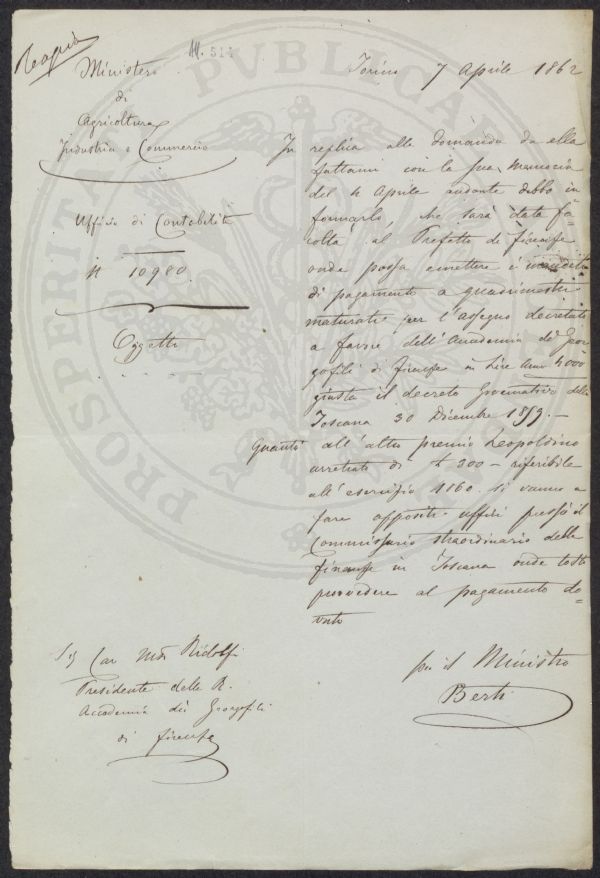 Copia
N. 514
PROSPERITATI PVBLICAE
Ministero
di
Agricoltura
Industria e Commercio
Uffizio di Contabilità
N 10980
Oggetto
Torino 7 Aprile 1862
In replica alla domanda da ella
fattami con la sua memoria
del 4 Aprile andante debbo in
formarlo, che sarà data fa-
coltà al Prefetto di Firenze
onde possa emettere i mandati
di pagamento a quadrimestri
maturati per l'assegno decretato
a favore dell'Accademia de' Geor
gofili di Firenze in Lire annue 4000
giusta il decreto Governativo della
Toscana 30 Dicembre 1859.-
Quanto all'altro premio Leopoldino
arretrato di £ 200 - riferibile
all'esercizio 1860. si vanno a
fare opposite uffizi presso il
Commissario straordinario delle
finanze in Toscana onde tosto
provvedere al pagamento do-
vuto
per il Ministro
Berti
Sig Cav Mse Ridolfi
Presidente della R.
Accademia dei Georgofili
di Firenze